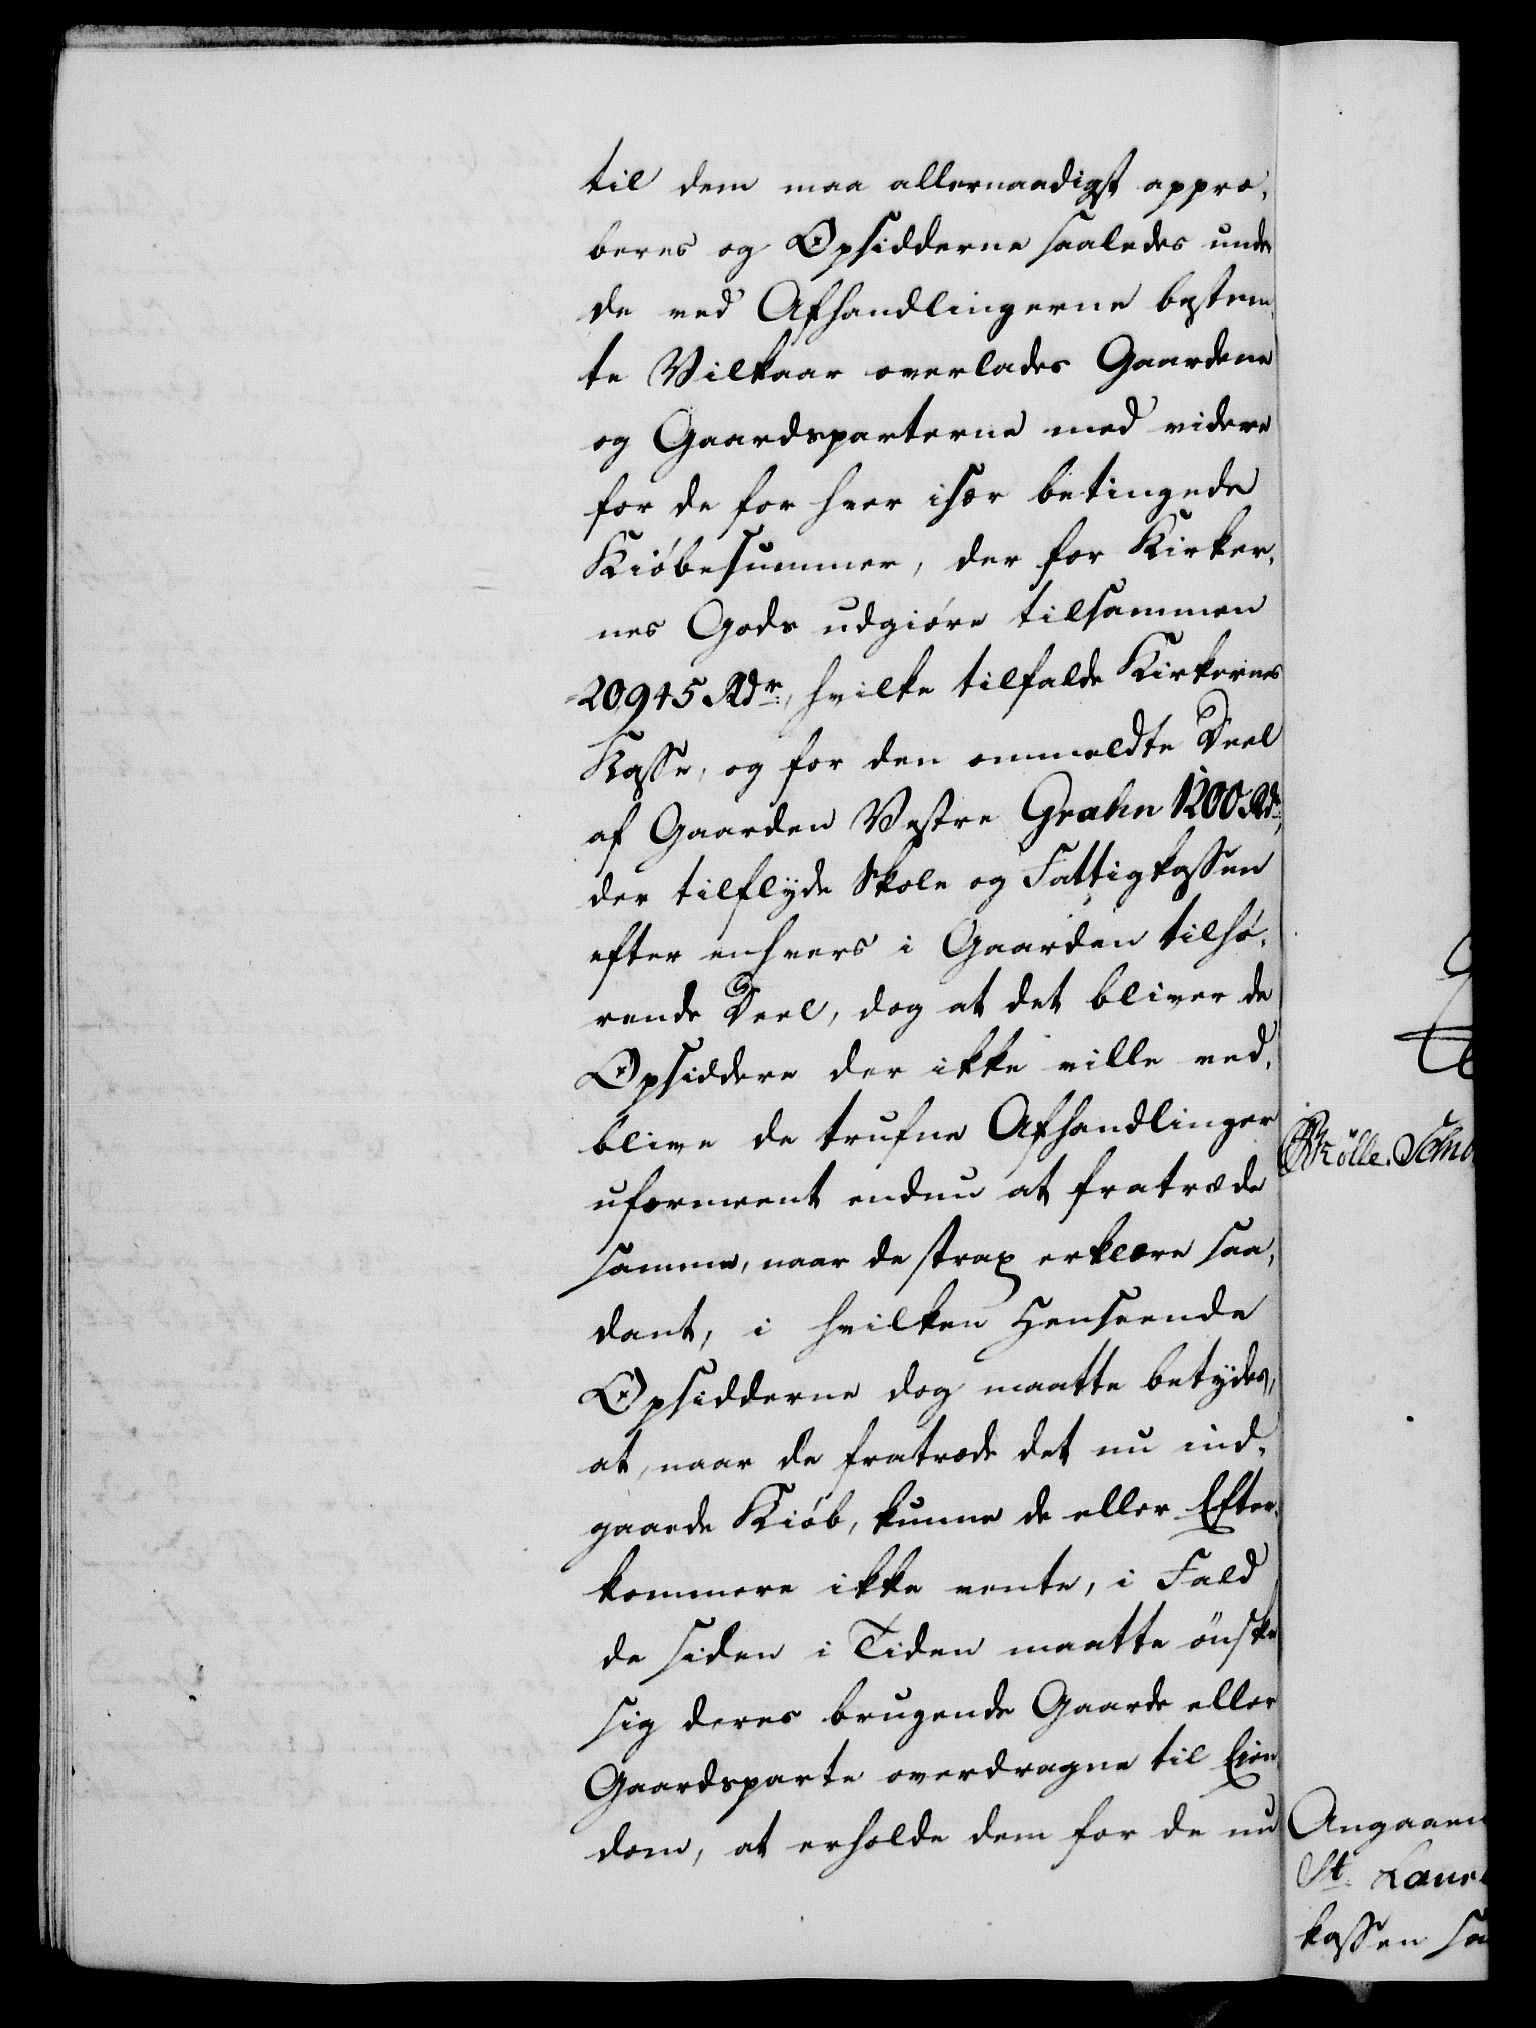 til dem maa allernaadigst appro-
beres og Opsidderne saaledes unde
de ved Afhandlingerne bestem-
te Vilkaar overlades Gaardene
og Gaardsparterne med videre
for de for hver især betingede
Kiøbesummer, der for Kirker-
nes Gods udgiøre tilsammen
20945 Rdr., hvilke tilfalde Kirkernes
Kasse, og for den ommeldte Deel
af Gaarden Vestre Grahn 1200 Rdr.,
der tilflyde Skole og Fattigkassen
efter enhvers i Gaarden tilhø-
rende Deel, dog at det bliver de
Opsiddere der ikke ville ved-
blive de trufne Afhandlinger
uformeent endnu at fratræde
samme, naar de strax erklære saa-
dant, i hvilken Henseende
Opsidderne dog maatte betydes,
at, naar de fratræde det nu ind-
gaaede Kiøb, kunne de eller Efter-
kommere ikke vente, i Fald
de siden i Tiden maatte ønske
sig deres brugende Gaarde eller
Gaardsparte overdragne til Eien-
dom, at erholde dem for de nu
Angaaen
St. Laur
kassen sa